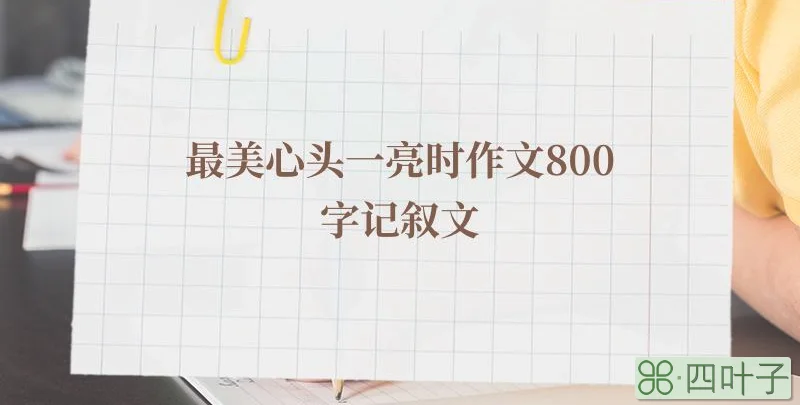 最美心头一亮时作文800
字记叙文
四叶子